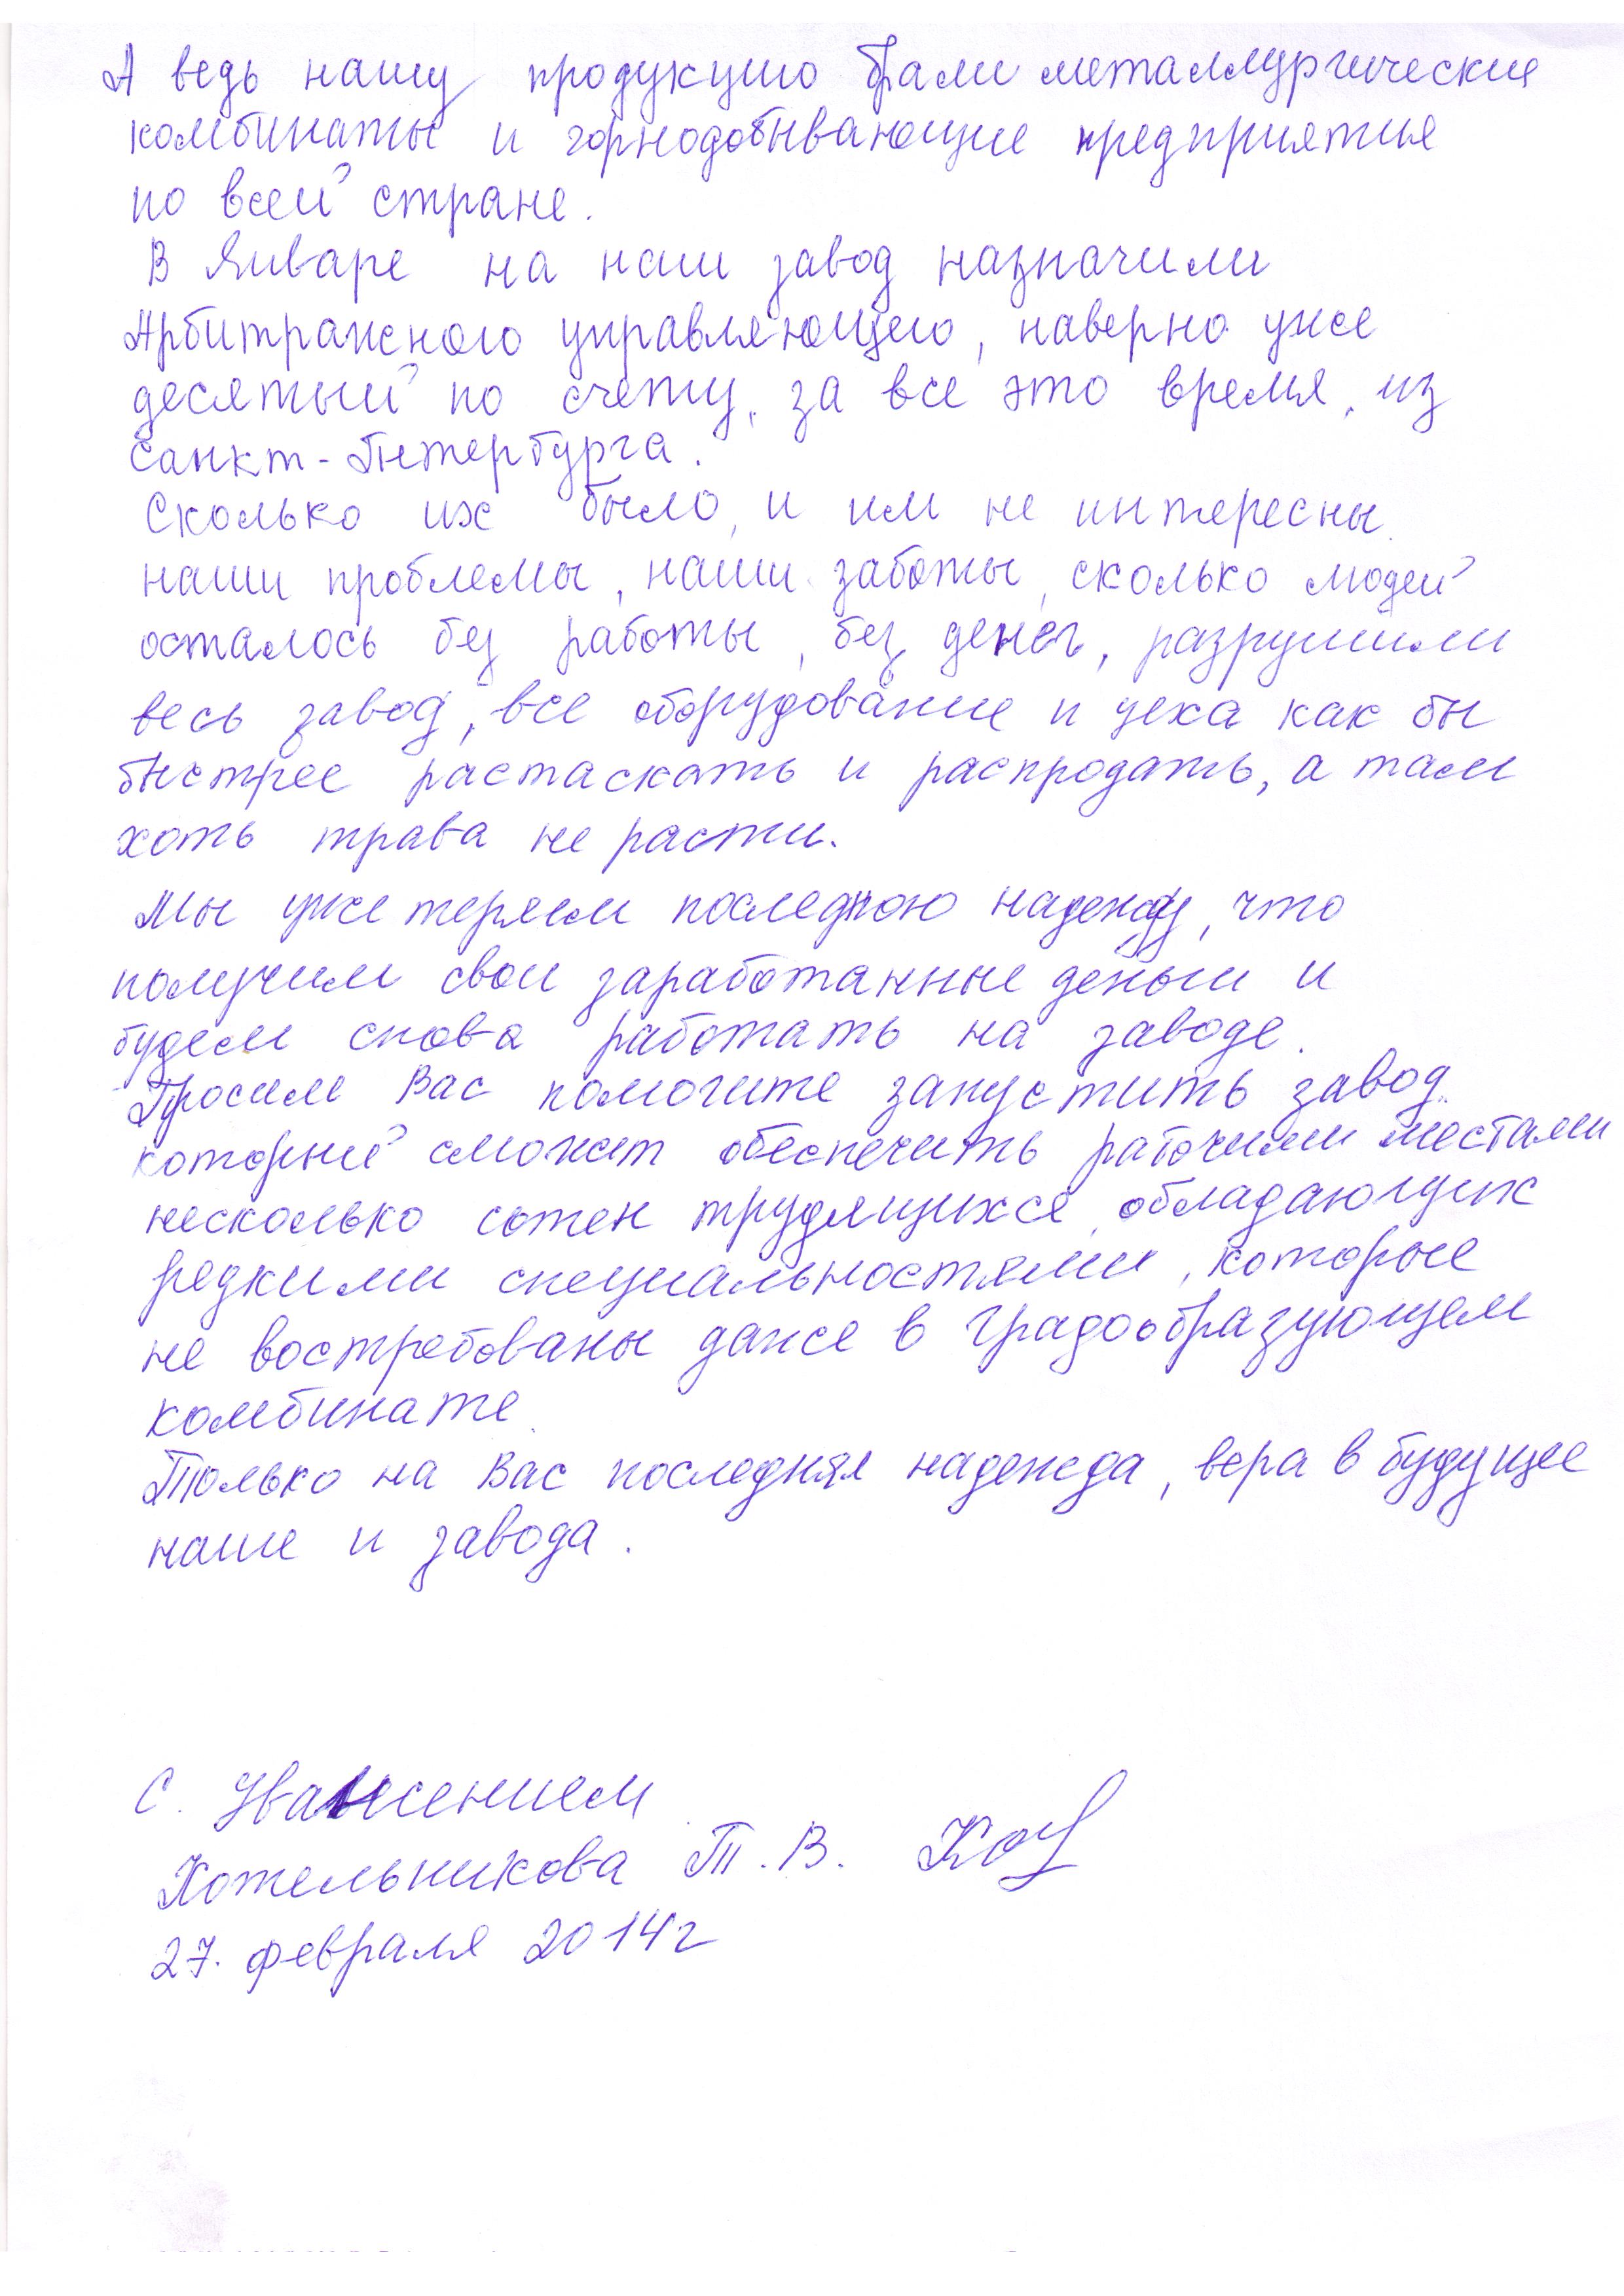 А ведь нашу продукцию брали металлургические
комбинаты и горнодобывающие предприятия
по всей стране.
В Январе на наш завод назначили
Арбитражного управляющего, наверно уже
десятый по счету, за все это время, из
Санкт-Петербурга.
Сколько их было, и им не интересны
наши проблемы, наши заботы, сколько людей
осталось без работы, без денег, разрушили
весь завод, все оборудование и цеха как бы
быстрее растаскать и распродать, а там
хоть трава не расти.
Мы уже теряем последнюю надежду, что
получим свои заработанные деньги и
будем снова работать на заводе.
Просим Вас помогите запустить завод
который сможет обеспечить рабочими местами
несколько сотен трудящихся, обладающих
редкими специальностями, которые
не востребованы даже в градообразующем
комбинате.
Только на Вас последняя надежда, вера в будущее
наше и завода.
С. Уважением
Котельникова Т.В.
27. февраля 2014г